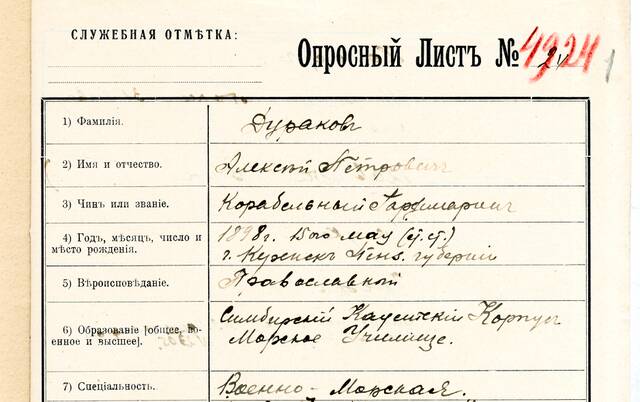 СЛУЖЕБНАЯ ОТМѢТКА:
Опросный Листъ № 4924 1
1) Фамилія. Дураковъ
2) Имя и отчество. Алексѣй Петровичъ
3) Чинъ или званіе. Корабельный Гардемаринъ
4) Годъ, мѣсяцъ, число и мѣсто рожденія. 1898г. 15го мая (ст. ст.)
г. Кузнецкъ Пенз. губерніи
5) Вѣроисповѣданіе. Православный
6) Образованіе [общее, военное и высшее]. Симбирскій Кадетскій Корпусъ
Морское Училище.
7) Спеціальность. Военно-Морская.